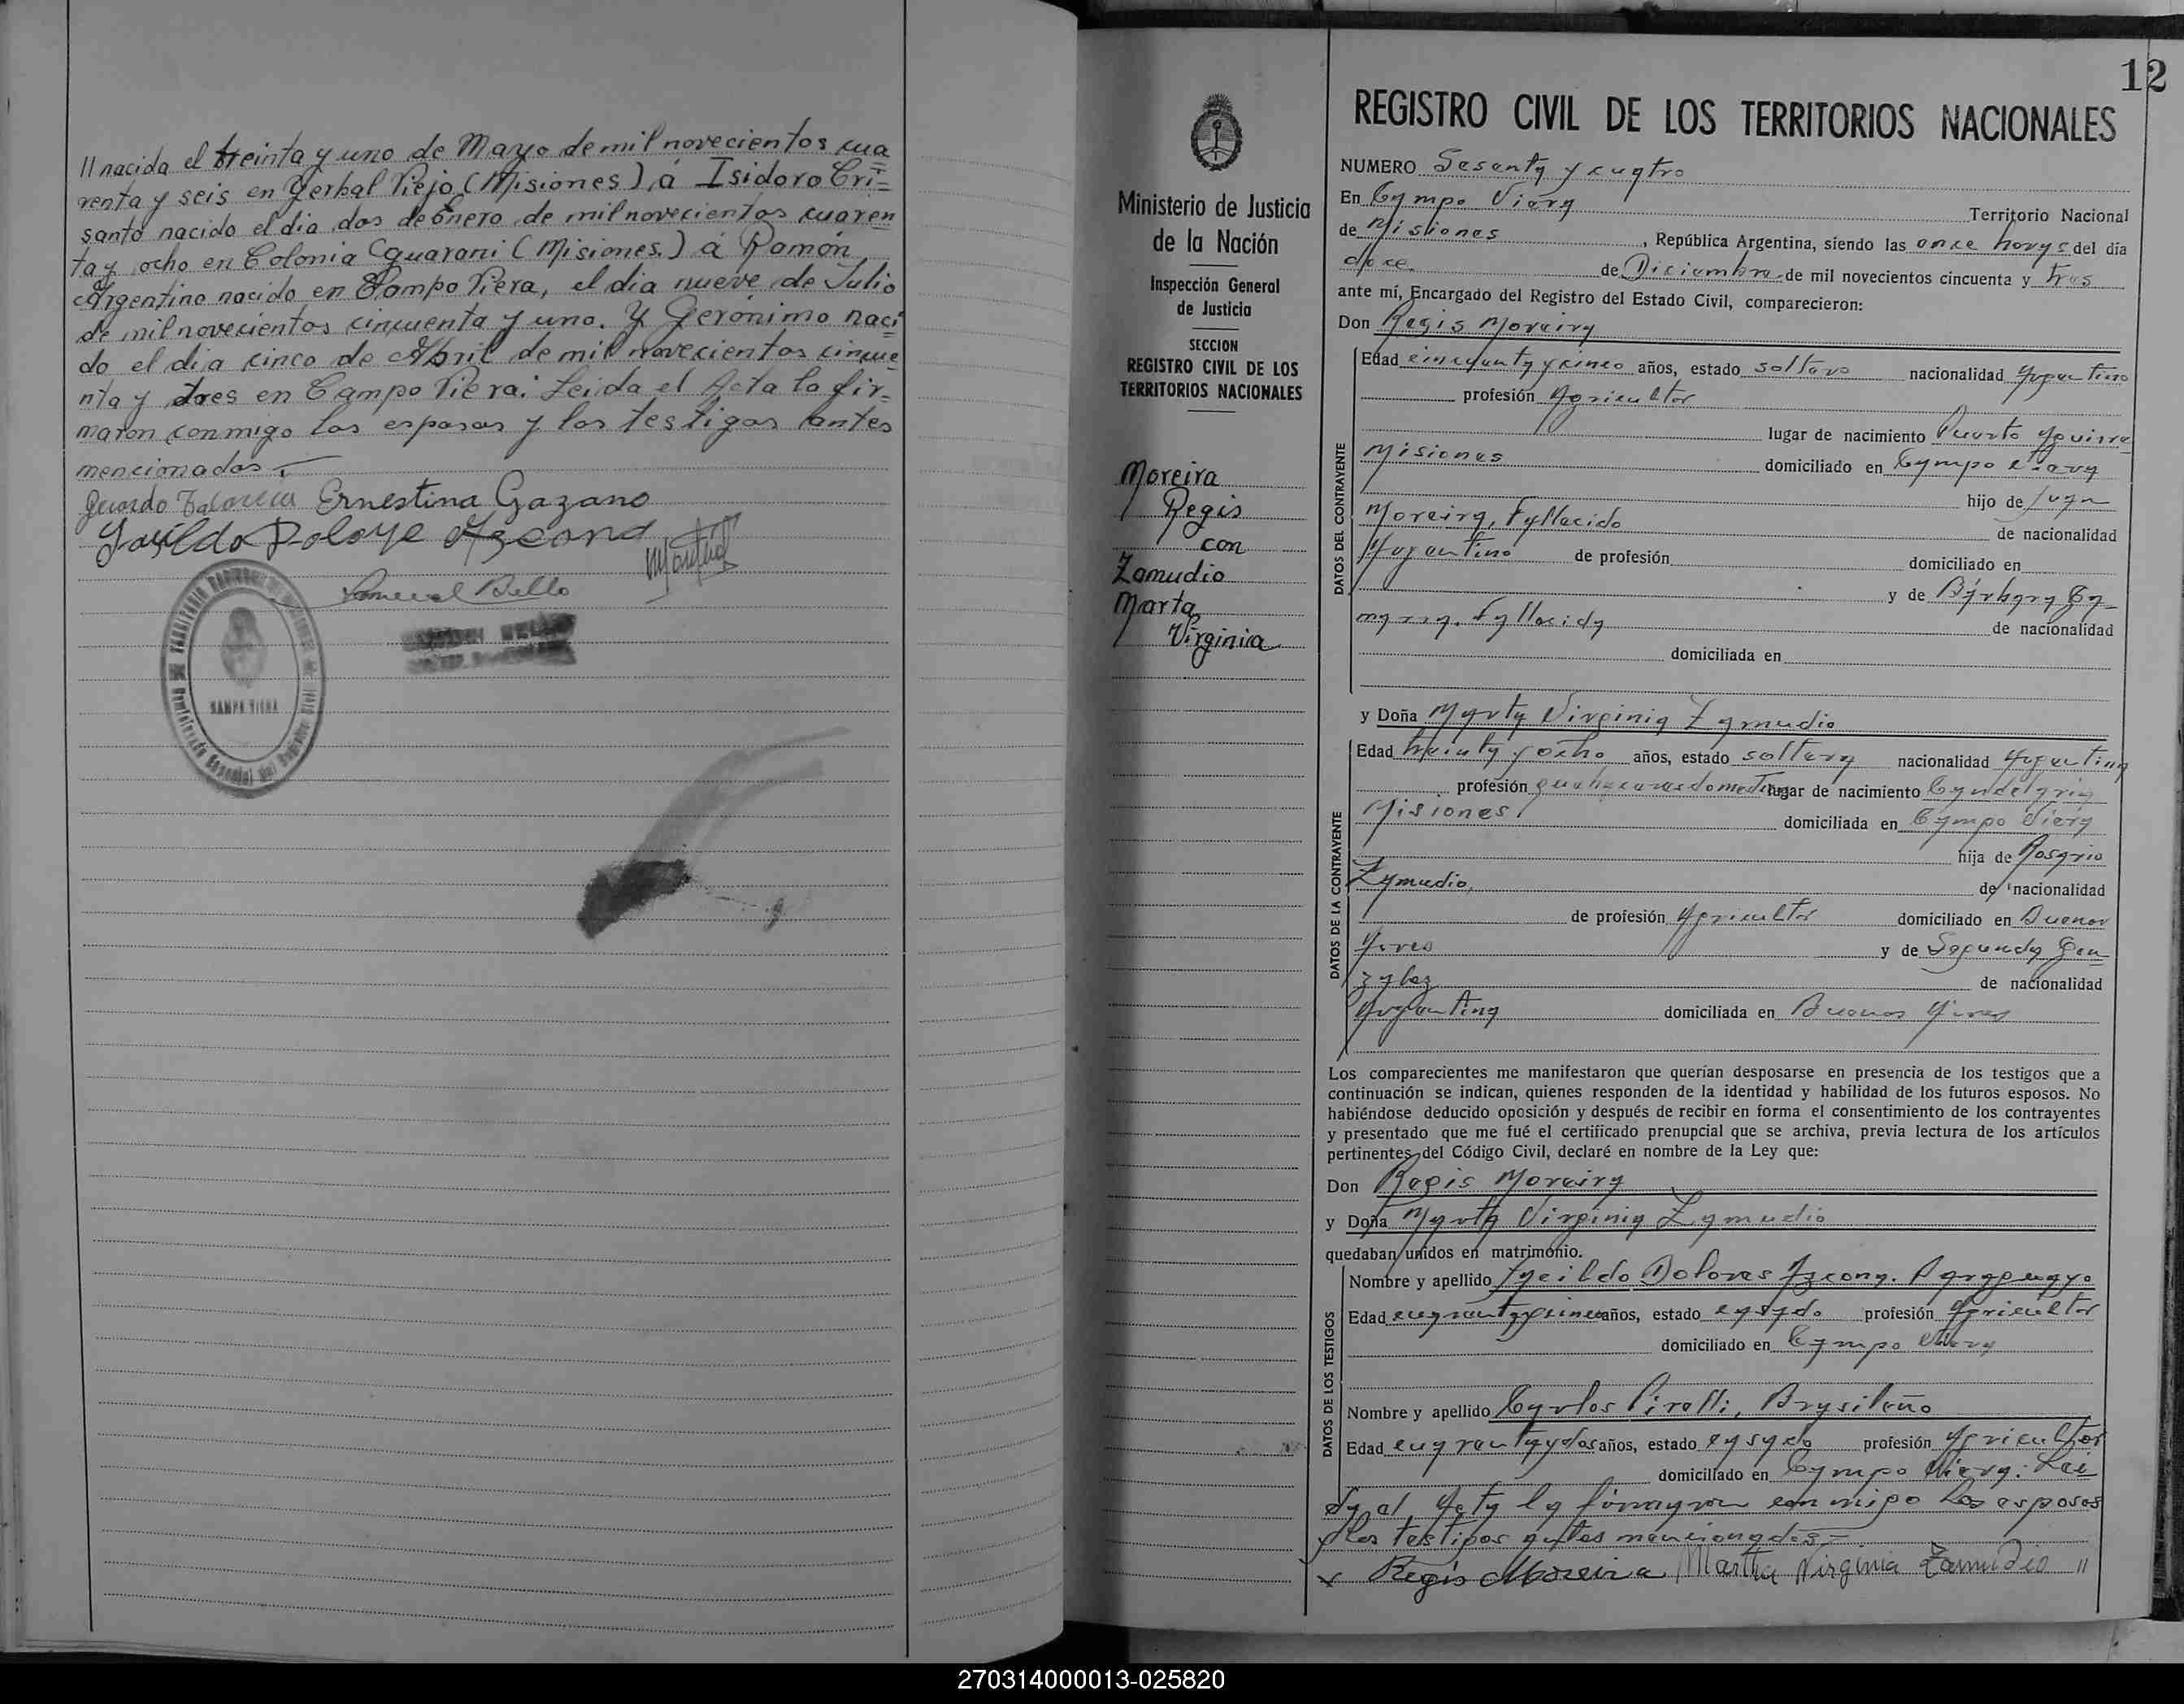 // nacida el treinta y uno de Mayo de mil novecientos cua=
renta y seis en Yerbal Viejo (Misiones) á Isidoro Cri=
santo nacido el dia dos de Enero de mil novecientos cuaren
ta y ocho en Colonia Guarani (Misiones.) á Ramón
Argentino nacido en Campo Viera, el dia nueve de Julio
de mil novecientos cincuenta y uno. Y Gerónimo naci=
do el dia cinco de Abril de mil novecientos cincue
nta y tres en Campo Viera: Leida el Acta la fir=
maron conmigo los esposos y los testigos antes
mencionados.
Ernestina Gazano
Samuel Bello
CAMPO VIERA
12
Ministerio de Justicia
de la Nación
Inspección General
de Justicia
SECCION
REGISTRO CIVIL DE LOS
TERRITORIOS NACIONALES
Moreira
Regis
con
Zamudio
Marta
Virginia
REGISTRO CIVIL DE LOS TERRITORIOS NACIONALES
NUMERO Sesenta y cuatro
En Campo Viera Territorio Nacional
de Misiones, República Argentina, siendo las once horas del día
doce de Diciembre de mil novecientos cincuenta y tres
ante mí, Encargado del Registro del Estado Civil, comparecieron:
Don Regis Moreira
DATOS DEL CONTRAYENTE
Edad cincuenta y cinco años, estado soltero nacionalidad Argentino
profesión Agricultor
lugar de nacimiento Puerto Aguirre
Misiones domiciliado en Campo Viera
hijo de Juan
Moreira, Fallecido de nacionalidad
Argentino de profesión domiciliado en
y de Bárbara Ga-
marra. Fallecida de nacionalidad
domiciliada en
y Doña Marta Virginia Zamudio
DATOS DE LA CONTRAYENTE
Edad treinta y ocho años, estado soltera nacionalidad Argentina
profesión quehaceres domesticos lugar de nacimiento Candelaria
Misiones domiciliada en Campo Viera
hija de Rosario
Zamudio, de nacionalidad
de profesión Agricultor domiciliado en Buenos
Aires y de Segunda Gon
zalez de nacionalidad
Argentina domiciliada en Buenos Aires
Los comparecientes me manifestaron que querían desposarse en presencia de los testigos que a
continuación se indican, quienes responden de la identidad y habilidad de los futuros esposos. No
habiéndose deducido oposición y después de recibir en forma el consentimiento de los contrayentes
y presentado que me fué el certificado prenupcial que se archiva, previa lectura de los artículos
pertinentes del Código Civil, declaré en nombre de la Ley que:
Don Regis Moreira
y Doña Marta Virginia Zamudio
quedaban unidos en matrimonio.
DATOS DE LOS TESTIGOS
Nombre y apellido Dolores Azcona. Paraguayo
Edad cuarenta y cinco años, estado casado profesión Agricultor
domiciliado en Campo Viera
Nombre y apellido Carlos Pirelli, Brasileño
Edad cuarenta y dos años, estado casado profesión Agricultor
domiciliado en Campo Viera: Lei
da el Acta la firmaron conmigo los esposos
y los testigos antes mencionados=
x Regis Moreira Martha Virginia Zamudio //
270314000013-025820